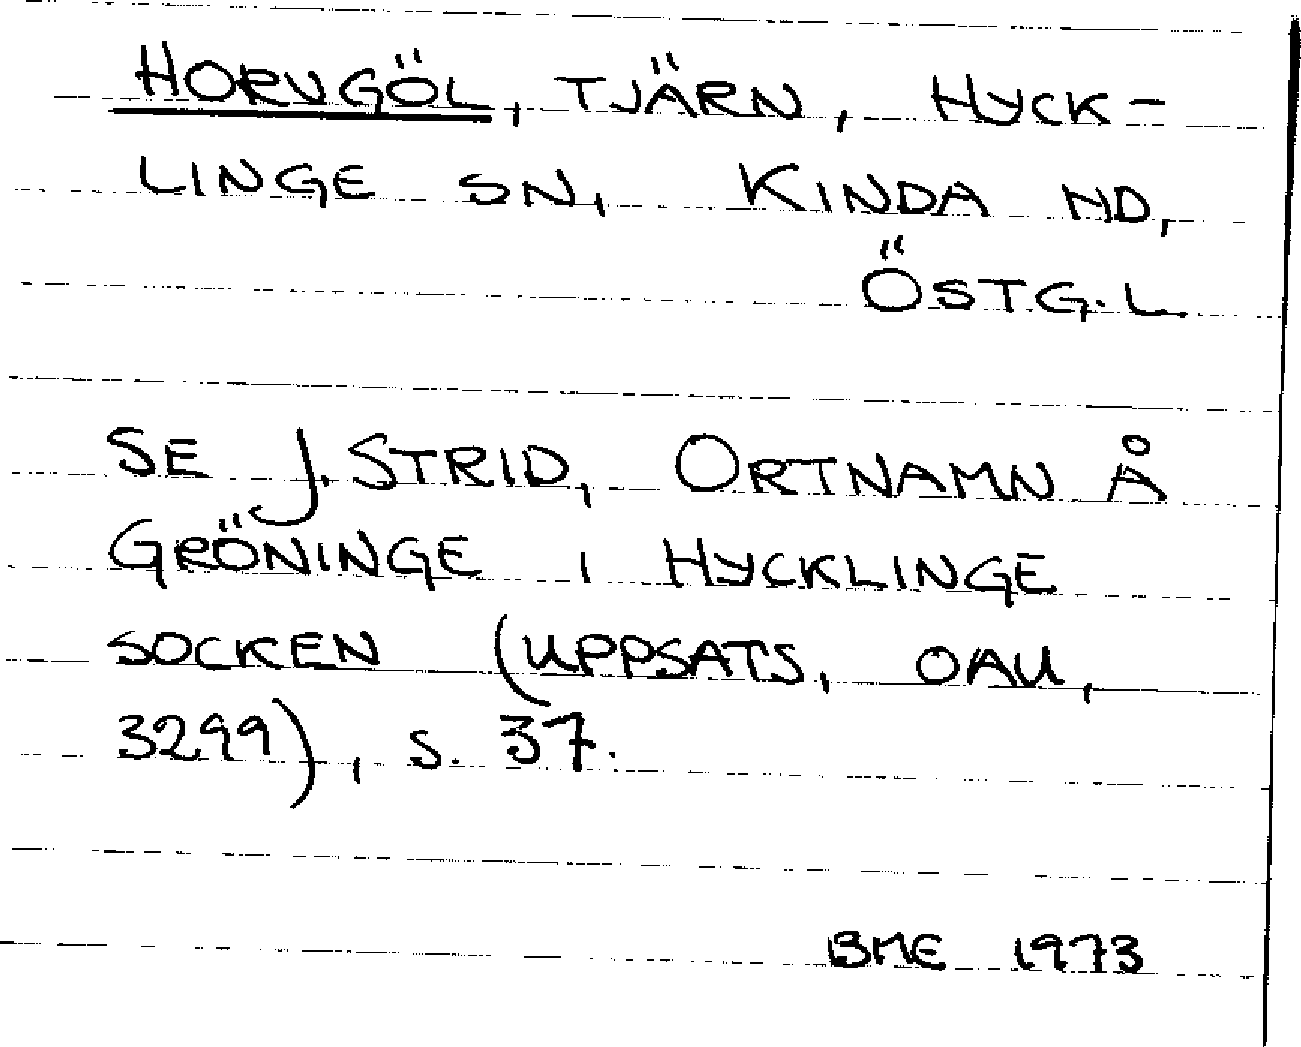 HORVGÖL, TJÄRN, HYCK-
LINGE SN, KINDA HD,
ÖSTG.L
SE J. STRID, ORTNAMN Å
GRÖNINGE I HYCKLINGE
SOCKEN (UPPSATS, OAU,
3299), S. 37.
BME 1973